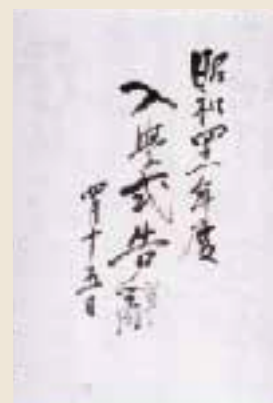 昭和四十一年度
入學式告辭
四月十五日